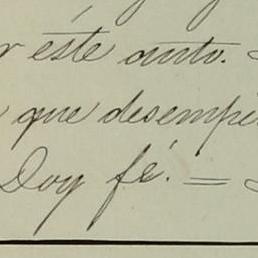 r este auto.
que desempe
Doy fé. =